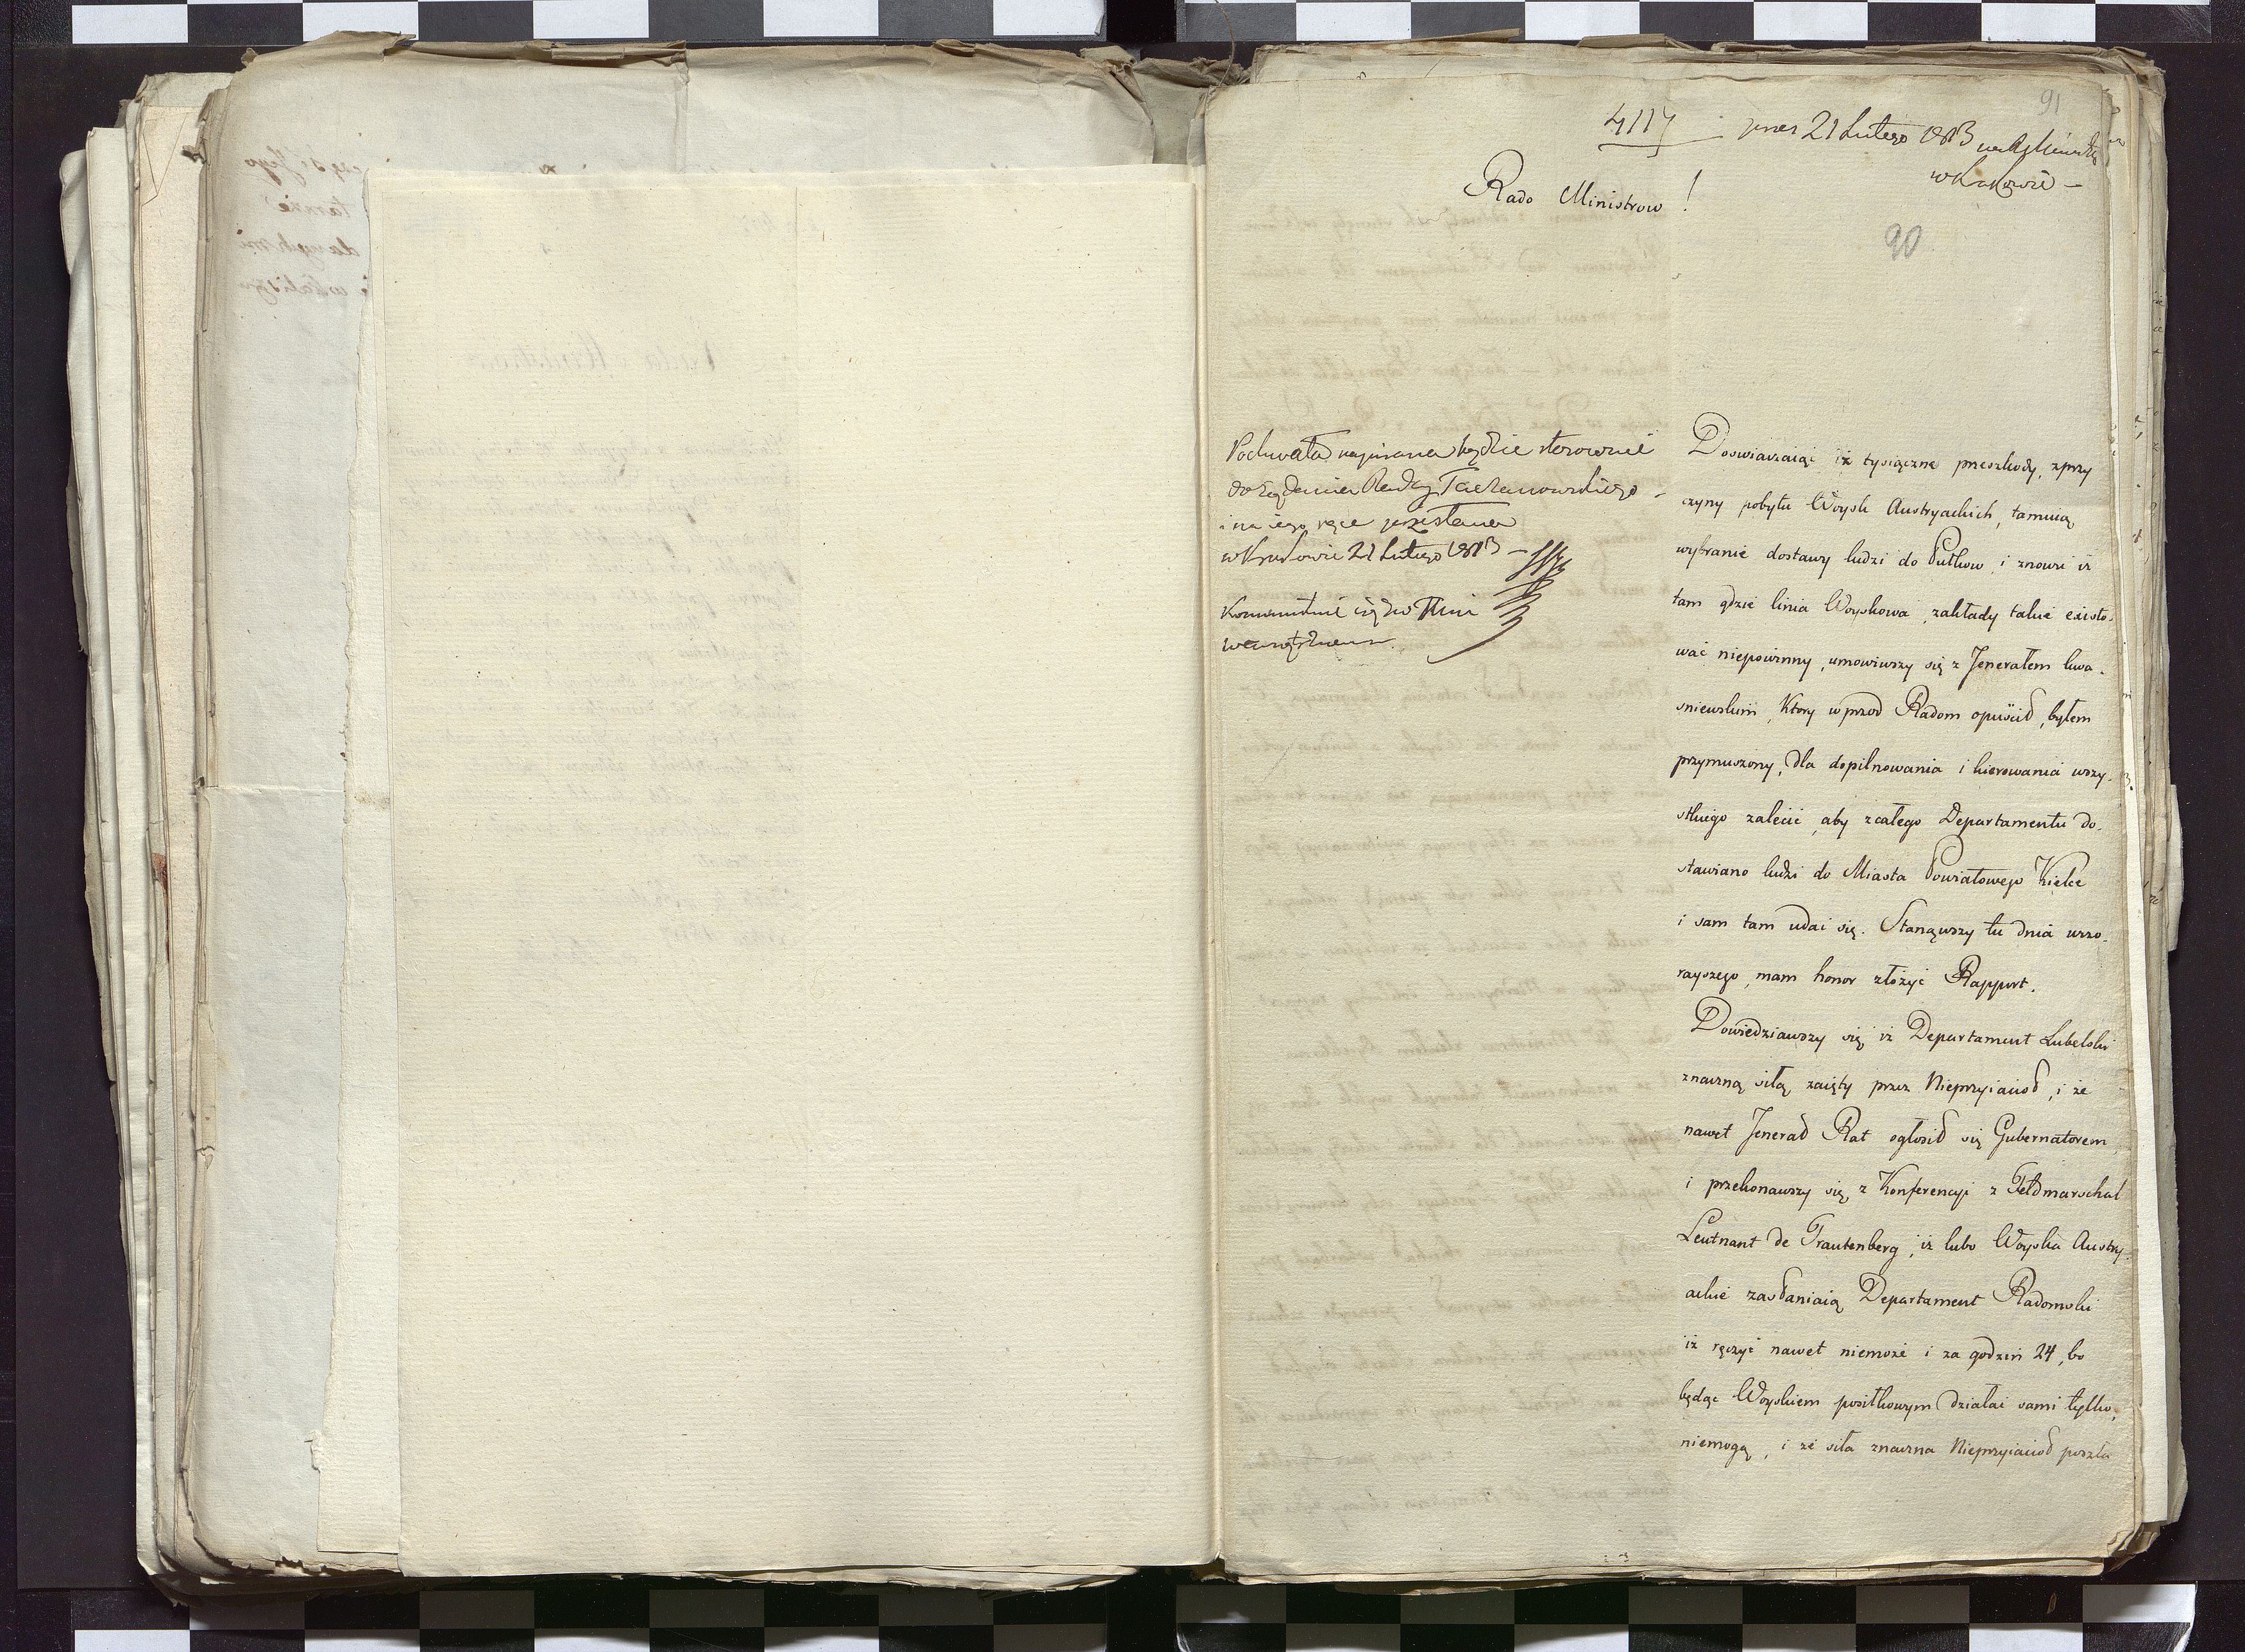 91
4117 — prez 21 Lutego 1813
w Krakowie —
Rado Ministrow!
90
Pochwała napisana będzie stosownie
do żądania Radcy Taczanowskiego —
i na iego ręce przesłana
w Krakowie 21 Lutego 1813 —
wewnętrznemu.
Doswiadczaiąc iż tysiączne przeszkody, z przy
czyny pobytu Woysk Austryackich, tamuią
wybranie dostawy ludzi do Pułkow, i znowu iż
tam gdzie linia Woyskowa, zakłady takie existo-
wać niepowinny, umowiwszy się z Jenerałem Kwa-
sniewskim, Ktory wprzod Radom opuścił, byłem
przymuszony, dla dopilnowania i kierowania wszy-
stkiego zalecić, aby z całego Departamentu do-
stawiano ludzi do Miasta Powiatowego Kielce
i sam tam udać się. Stanąwszy tu dnia wczo-
rayszego, mam honor złożyć Rapport.
Dowiedziawszy się, iż Departament Lubelski
znaczną siłą zaięty przez Nieprzyiacioł, i że
nawet Jenerał Rat ogłosił się Gubernatorem,
i przekonawszy się z Konferencyi z Feldmarschal
Leutnant de Trautenberg, iż lubo Woyska Austry-
ackie zasłaniaią Departament Radomski
iż ręczyć nawet niemoże i za godzin 24, bo
będąc Woyskiem posiłkowym działać sami tylko,
niemogą, i że siła znaczna Nieprzyiacioł poszła